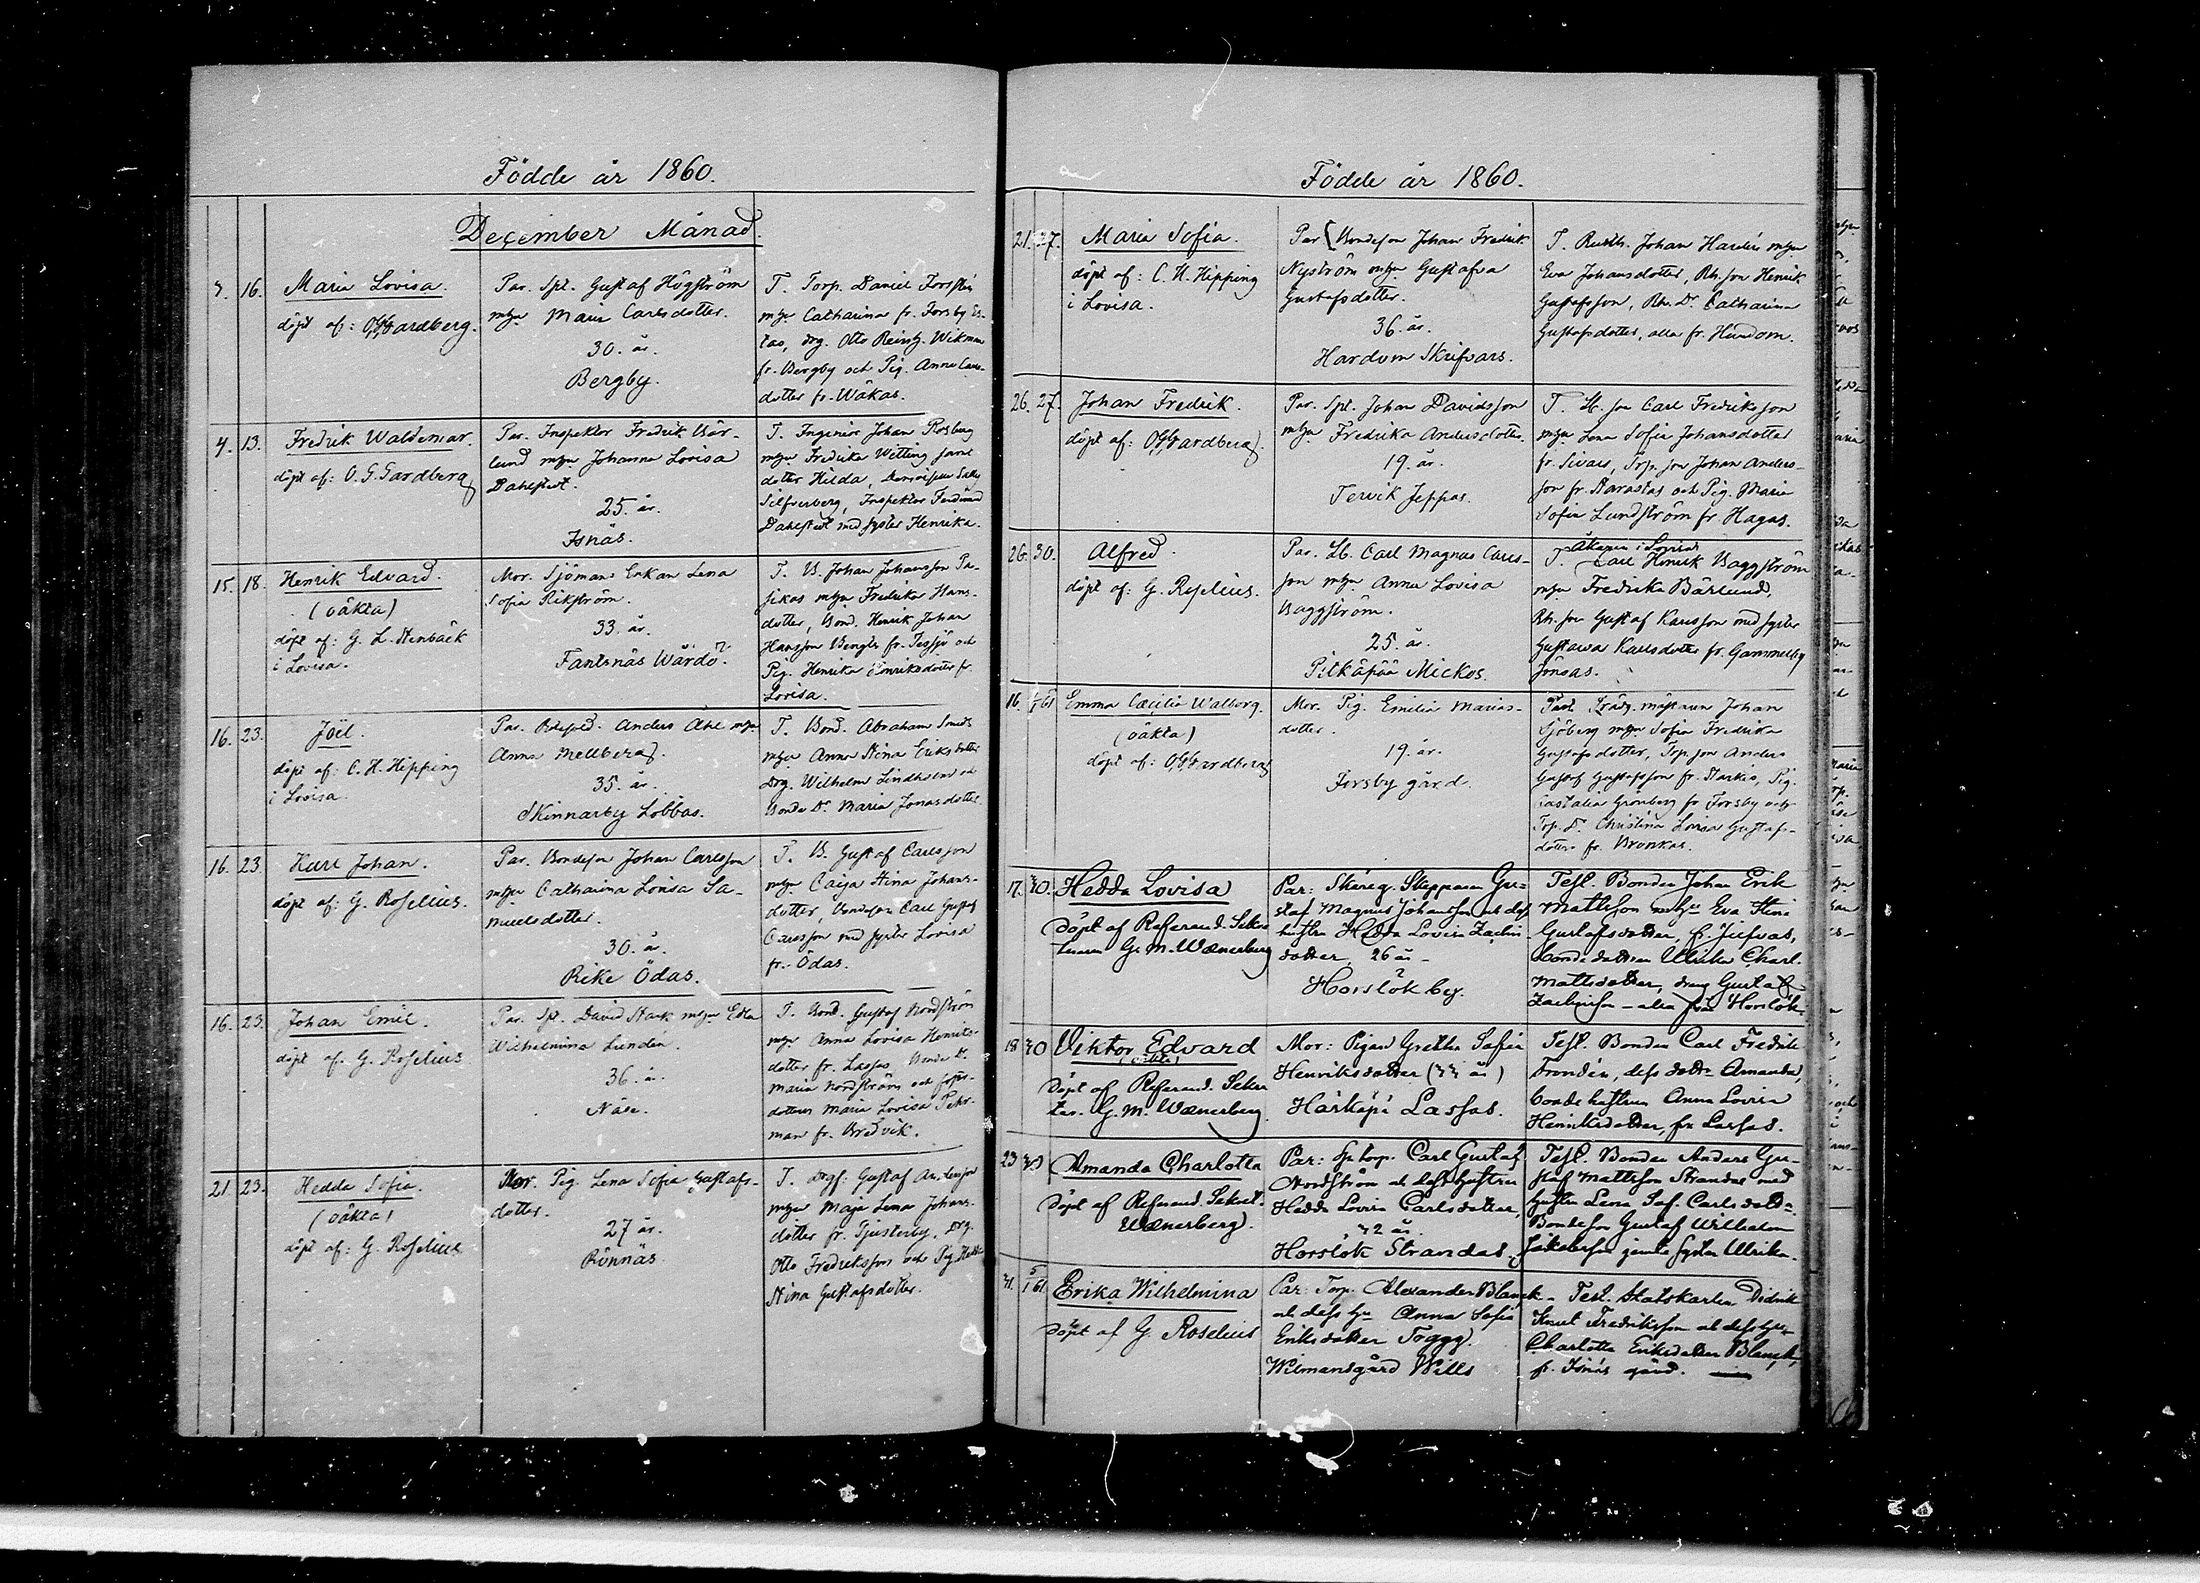 Födde år 1860.
December Månad.
3. 16. Maria Lovisa.
döpt af: O. G. Gardberg.
Par. Spt. Gustaf Högström
mhu Maria Carlsdotter.
30. år.
Bergby.
T. Torp. Daniel Forsstén
mhu Catharina fr. Forsby
drg. Otto Reinh. Wikman
fr. Bergby och Pig. Anna
dotter fr. Wåkas.
4. 13. Fredrik Waldemar.
döpt af: O. G. Gardberg
Par. Inspektor Fredrik Bär-
lund mhu Johanna Lovisa
Dahlstedt.
25. år.
Isnäs.
T. Ingeniör Johan Rosberg
mhu Fredrika Witting samt
dotter Hilda,
Silfverberg, Inspektor Ferdinand
Dahlstedt med syster Henrika.
15. 18. Henrik Edvard.
(oäkta)
döpt af: G. L. Stenbäck
i Lovisa.
Mor. Sjömans Enkan Lena
Sofia Rikström.
33. år.
Fantsnäs Wårdö
T. B. Johan Johansson
mhu Fredrika Hans-
dotter, Bond. Henrik Johan
Hansson Bengts fr. Tessjö och
Pig. Henrika Henriksdotter fr.
Lovisa.
16. 23. Joël.
döpt af: C. H. Hipping
i Lovisa.
Par. Anders Ahl mhu
Anna Mellberg.
35. år.
Skinnarby Lobbas.
T. Bond. Abraham Smeds
mhu Anna Stina Eriksdotter
Drg. Wilhelm Lindholm och
Bonde Dr Maria Jonasdotter
16. 23. Karl Johan.
döpt af: G. Roselius.
Par. Bondeson Johan Carlsson
mhu Catharina Lovisa Sa-
muelsdotter.
30. år.
Rike Ödas.
T. B. Gustaf Carlsson
mhu Caija Stina Johans-
dotter, Bondeson Carl Gustaf
Carlsson med syster Lovisa
fr. Ödas.
16. 23. Johan Emil.
döpt af. G. Roselius
Par. Spt. David Stark mhu Edla
Wilhelmina Lundén.
36. år.
Näse.
T. Bond. Gustaf Nordström
mhu Anna Lovisa Henriks-
dotter fr. Lassas, Bonde Dr.
Maria Nordström och
dottern Maria Lovisa Pehr-
man fr. Bredvik.
21. 23. Hedda Sofia.
(oäkta)
döpt af: G. Roselius
Mor. Pig. Lena Sofia Gustafs-
dotter.
27 år.
Rönnäs.
T. Drgs. Gustaf Andersson
mhu Maja Lena Johans-
dotter fr. Tjusterby, Drg.
Otto Fredriksson och Pig. Hedda
Stina Gustafsdotter.
Födde år 1860.
21. 27. Maria Sofia.
döpt af: C. H. Hipping
i Lovisa.
Par Bondeson Johan Fredrik
Nyström mhu Gustafva
Gustafsdotter.
36. år.
Hardom Skrifvars.
T. Rusth. Johan Hardén mhu
Eva Johansdotter, Rh. son Henrik
Gustafsson, Rh. Dr Catharina
Gustafsdotter, alla fr. Hardom.
26. 27. Johan Fredrik.
döpt af: O. G. Gardberg.
Par. Spt. Johan Davidsson
mhu Fredrika Andersdotter
19. år.
Tervik Jeppas.
T. Lb. son Carl Fredriksson
mhu Lena Sofia Johansdotter
fr. Sivars, Trp. son Johan Anders-
son fr. och Pig. Maria
Sofia Lundström fr. Hagas.
26. 30. Alfred.
döpt af: G. Roselius.
Par. Lb. Carl Magnus Carls-
son mhu Anna Lovisa
Baggström.
25. år.
Pitkäpää Mickos.
Åkaren i Lovisa
T. Carl Henrik Baggström
mhu Fredrika Bärlund,
Rh. son Gustaf Karlsson med syster
Gustava Karlsdotter fr. Gammelby
Jönsas.
16. 1/1 61 Emma Cæcilia Walborg.
(oäkta)
döpt af: O. G. Gardberg
Mor. Pig. Emilia Marias-
dotter.
19. år.
Forsby gård.
Johan
Sjöberg mhu Sofia Fredrika
Gustafsdotter, Trp. son Anders
Gustaf Gustafsson fr. Starkis, Pig.
Castalia Grönberg fr Forsby och
Trp. Dr. Christina Lovisa Gustafs-
dotter fr. Bronkas.
17. 30. Hedda Lovisa
Döpt af Referend. Sekre-
teraren G. M. Wænerberg
Par: Skärg. Skepparen Gu-
staf Magnus Johansson och dess
hustru Hedda Lovisa
dotter, 26 år -
Horslök by.
Test. Bonden Johan Erik
Mattsson mhu Eva Stina
Gustafsdotter, fr. Jufvas,
bondedottren Ulrika Charl.
Mattsdotter, dräng Gustaf
- alla från Horslök.
18 30 Viktor Edvard
(oäkta)
Döpt af Referend. Sekre
ter. G. M. Wænerberg
Mor: Pigan Gretha Sofia
Henriksdotter (33 år)
Härkäpä Lassas.
Test. Bonden Carl Fredrik
Frondén, dess dotter Amanda,
bondehustrun Anna Lovisa
Henriksdotter, frn Lassas.
23 30 Amanda Charlotta
Döpt af Referend. Sekret.
Wænerberg.
Par: Carl Gustaf
Nordström och dess hustru
Hedda Lovisa Carlsdotter,
32 år.
Horslök Strandas.
Test. Bonden Anders Gu-
staf Mattsson Strandas med
hustru Lena Sof. Carlsdotter
Bondeson Gustaf Wilhelm
Jakobsson jemte syster Ulrika.
31. 5/1 61 Erika Wilhelmina
Döpt af G. Roselius
Par: Torp. Alexander Blanck
och dess hu Anna Sofia
Eriksdotter Trygg.
Wilmansgård Wills
Test. Statskarlen Didrik
Knut Fredriksson och dess hu
Charlotta Eriksdotter Blanck,
fr. Isnäs gård.